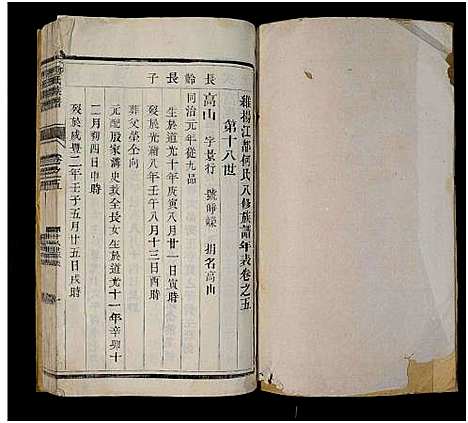 維揚江都何氏八修族譜年表卷之五
第十八世
長 齡 長 子
高山 字景行 號靜嶸 捐名高山
同治元年從九品
生於道光十年庚寅八月廿一日寅時
歿於光緒八年壬午八月十三日酉時
葬父塋仝向
元配殷家溝史 全長女 生於道光十一年辛卯十
二月初四日申時
歿於咸豐二年壬子五月廿五日戌時
卷之五